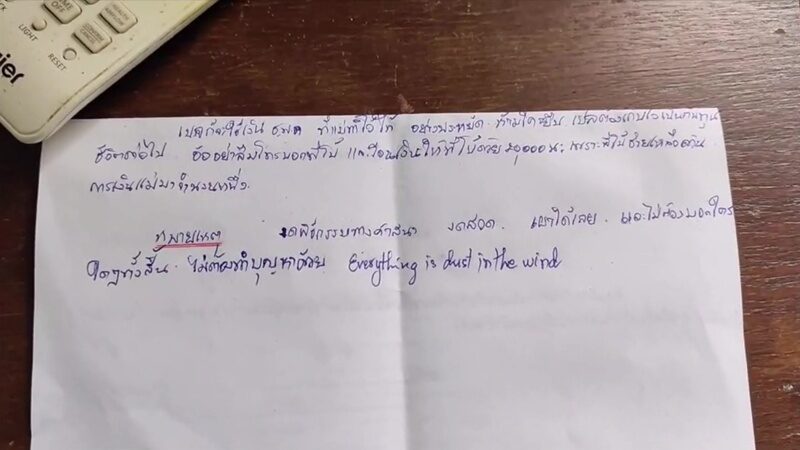 LIGHT
RESET
เปลต้องใช้เงิน ธกส ที่แม่ทำไว้ให้ อย่างประหยัด ห้ามใครยืม เปลต้องเก็บไว้เป็นทุน
ชีวิตต่อไป อ้ออย่าลืมโทรบอกพี่โบ้ และโอนเงินให้พี่โบ้ด้วย เพราะพี่โบ้ช่วยเหลือด้าน
การเงินแม่มาจำนวนหนึ่ง.
หมายเหตุ งดพิธีกรรมทางศาสนา งดสวด. เผาได้เลย. และไม่ต้องบอกใคร
ใดๆทั้งสิ้น. ไม่ต้องทำบุญหาด้วย Everything is dust in the wind